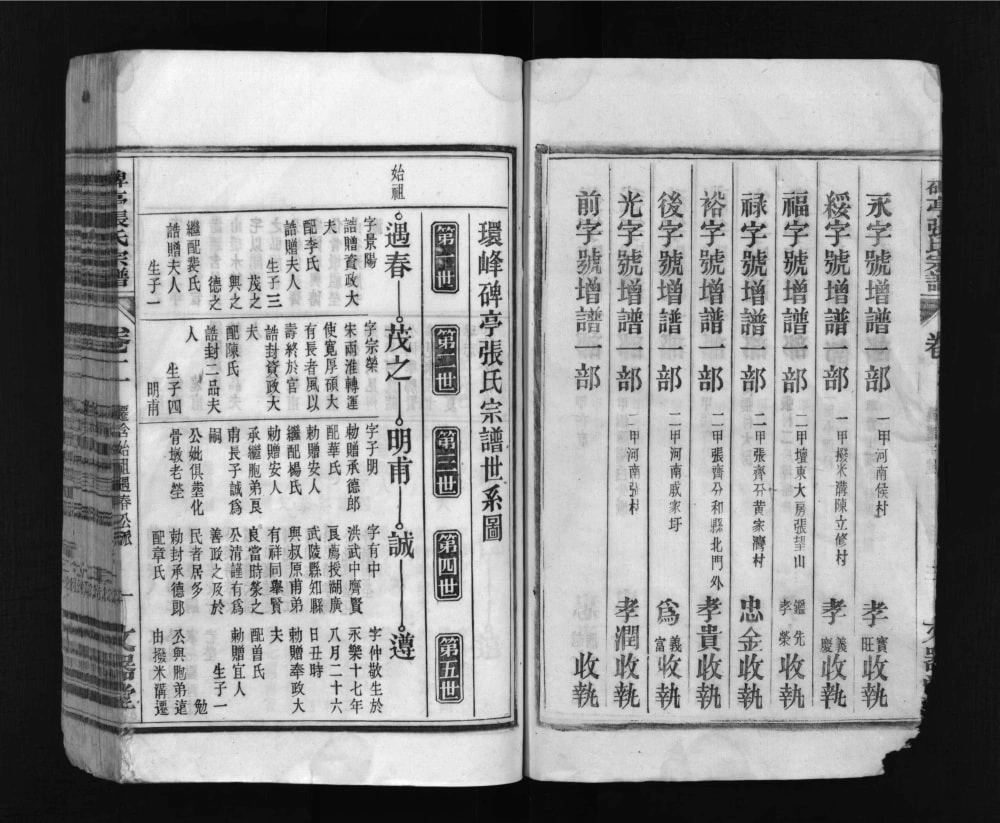 永字號增譜一部 一甲河南侯村 孝寶旺收執
綏字號增譜一部 一甲撥米溝陳立修村 孝義慶收執
福字號增譜一部 二甲壇東大房張望山 鑑先孝榮收執
祿字號增譜一部 二甲張齊分黄家灣村 忠金收執
裕字號增譜一部 二甲張齊分和縣北門外 孝貴收執
後字號增譜一部 二甲河南戚家圩 為義富收執
光字號增譜一部 二甲河南張村 孝潤收執
前字號增譜一部
環峰碑亭張氏宗譜世系圖
第一世
第二世
第三世
第四世
第五世
始祖
遇春
茂之
明甫
誠
遵
字景陽
誥贈資政大
夫
配李氏
誥贈夫人
生子三
茂之
興之
德之
繼配裴氏
誥贈夫人
生子一
字宗榮
宋兩淮轉運
使寬厚碩大
有長者風以
壽終於官
誥封資政大
夫
配陳氏
誥封二品夫
人
生子四
明甫
字子明
勅贈承德郎
配華氏
勅贈安人
繼配楊氏
勅贈安人
承繼胞弟良
甫長子誠為
嗣
公妣俱塟化
骨墩老塋
字有中
洪武中膺賢
良薦授湖廣
武陵縣知縣
與叔原甫弟
有祥同舉賢
良當時榮之
公清謹有為
善政之及於
民者居多
勅封承德郎
配章氏
字仲敬生於
永樂十七年
八月二十六
日丑時
勅贈奉政大
夫
配曽氏
勅贈宜人
生子一
勉
公與胞弟遠
由撥米溝遷
碑亭張氏宗譜
卷十二
遷含始祖遇春公
一